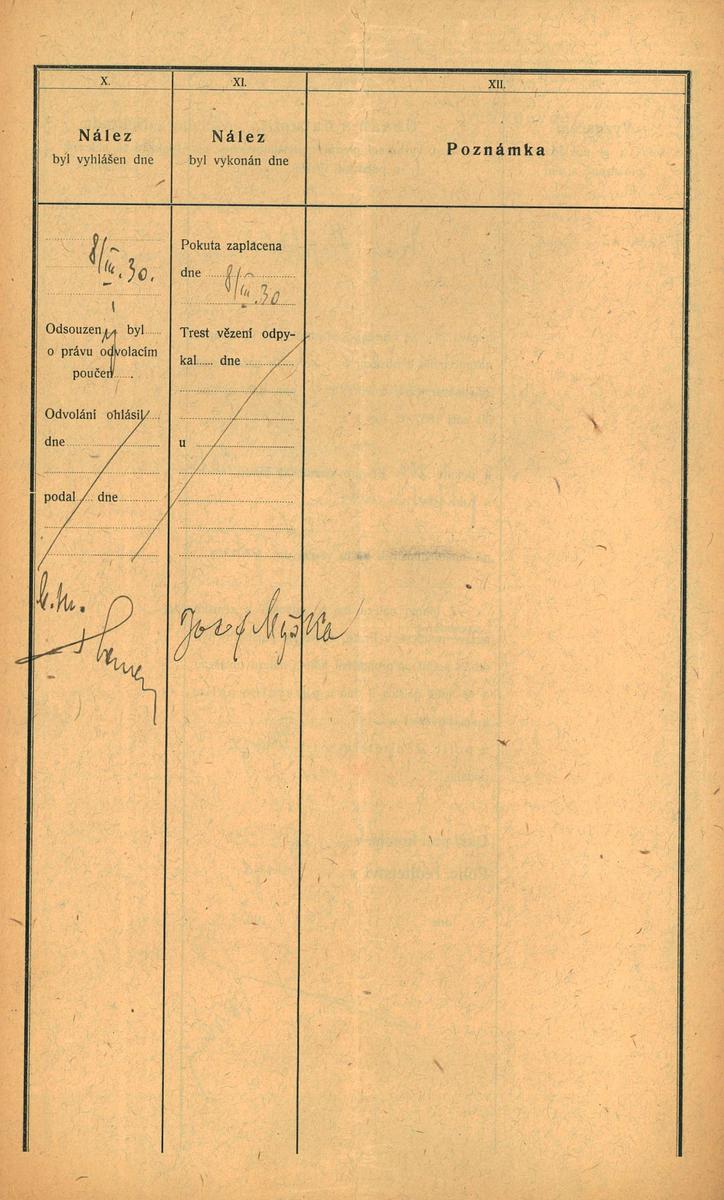 X.
Nález
byl vyhlášen dne
8/III.30.
Odsouzený byl
o právu odvolacím
poučen
Odvolání ohlásil
dne
podal dne
XI.
Nález
byl vykonán dne
Pokuta zaplacena
dne 8/III.30
Trest vězení odpy-
kal dne
u
Josef Myška
XII.
Poznámka